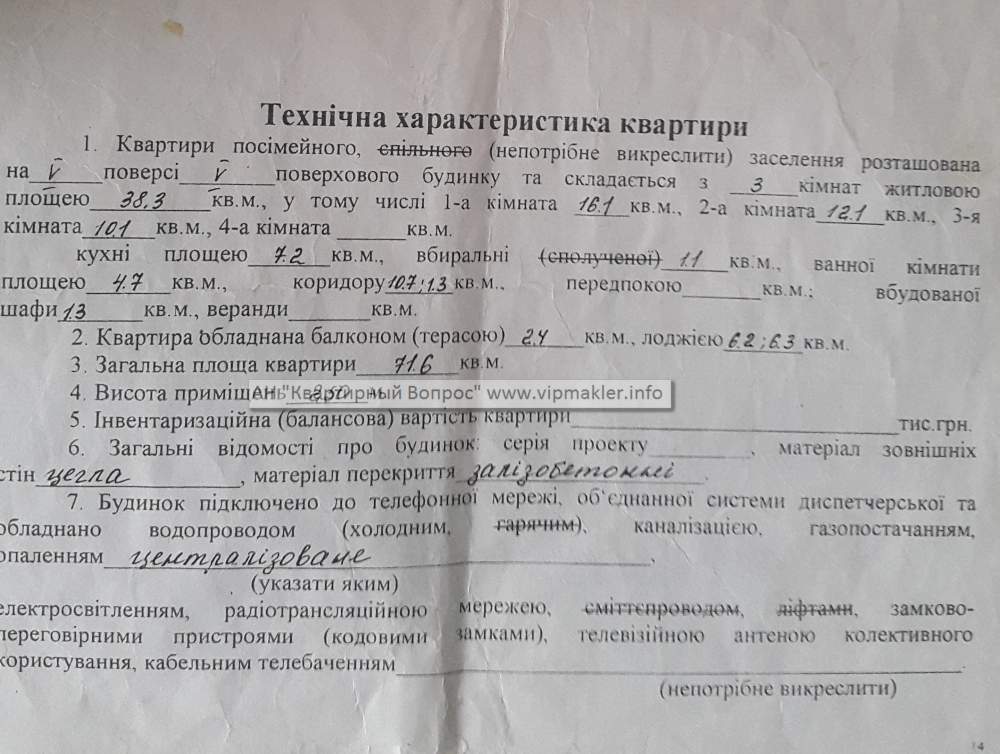 Технічна характеристика квартири
1. Квартири посімейного, спільного (непотрібне викреслити) заселення розташована
на V поверсі V поверхового будинку та складається з 3 кімнат житловою
площею 38,3 кв.м., у тому числі 1-а кімната 16.1 кв.м., 2-а кімната 12.1 кв.м., 3-я
кімната 10.1 кв.м., 4-а кімната ______ кв.м.
кухні площею 7.2 кв.м., вбиральні (сполученої) 1.1 кв.м., ванної кімнати
площею 4.7 кв.м., коридору 10.7; 1.3 кв.м., передпокою ______ кв.м.; вбудованої
шафи 1.3 кв.м., веранди ______ кв.м.
2. Квартира обладнана балконом (терасою) 2.4 кв.м., лоджією 6.2; 6.3 кв.м.
3. Загальна площа квартири 71.6 кв.м.
4. Висота приміщень
АН "Квартирный Вопрос" www.vipmakler.info
5. Інвентаризаційна (балансова) вартість квартири ______ тис.грн.
6. Загальні відомості про будинок: серія проекту ______, матеріал зовнішніх
стін цегла, матеріал перекриття залізобетонні.
7. Будинок підключено до телефонної мережі, об'єднанної системи диспетчерської та
обладнано водопроводом (холодним, гарячим), каналізацією, газопостачанням,
опаленням централізоване,
(указати яким)
електросвітленням, радіотрансляційною мережею, сміттєпроводом, ліфтами, замково-
переговірними пристроями (кодовими замками), телевізійною антеною колективного
користування, кабельним телебаченням ______.
(непотрібне викреслити)
4